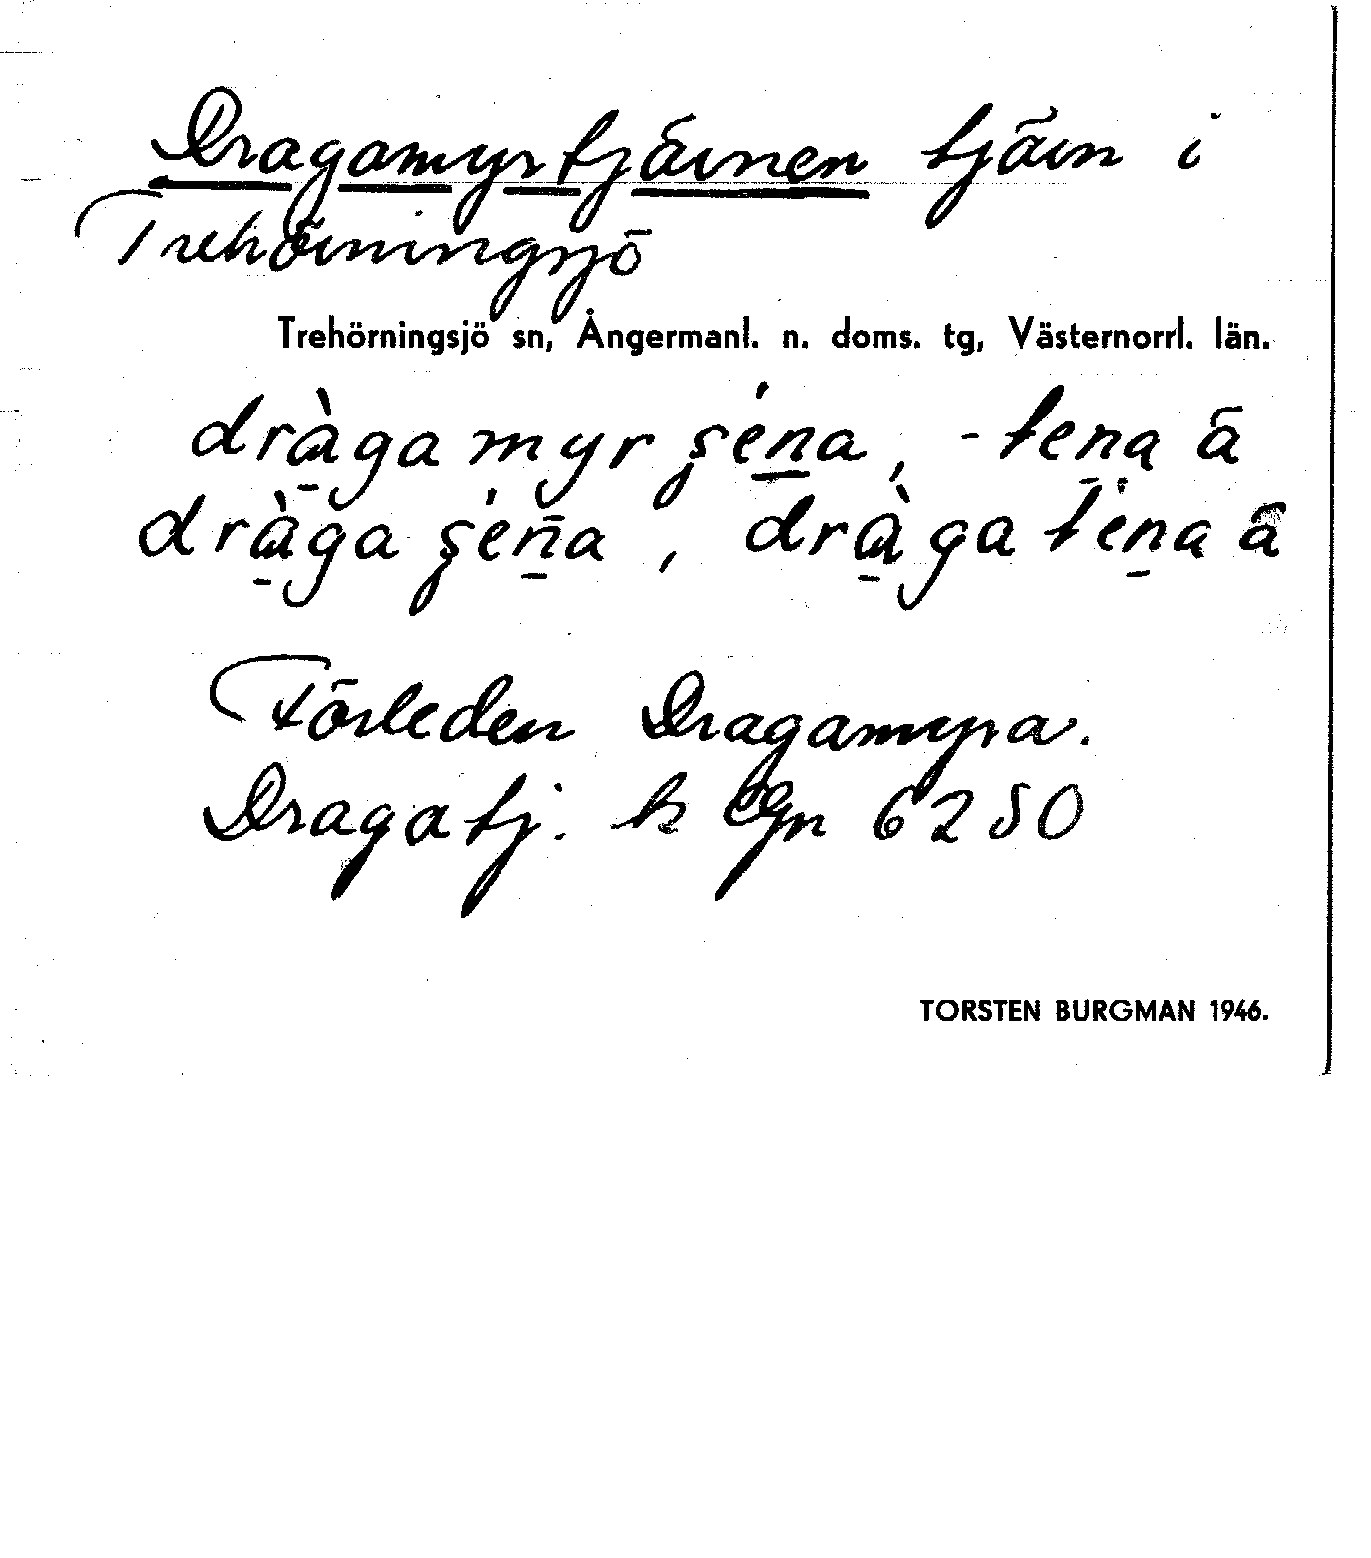 Dragamyrtjärnen tjärn i
Trehörningsjö
Trehörningsjö sn, Ångermanl. n. doms. tg, Västernorrl. län.
dràgamyr şéna, -tena ä
dràga şéna, dràga téna ä
Förleden Dragamyra.
Dragatj. k 6250
TORSTEN BURGMAN 1946.